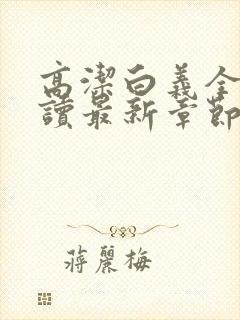 高潔白義全
讀最新章節
蔣麗梅